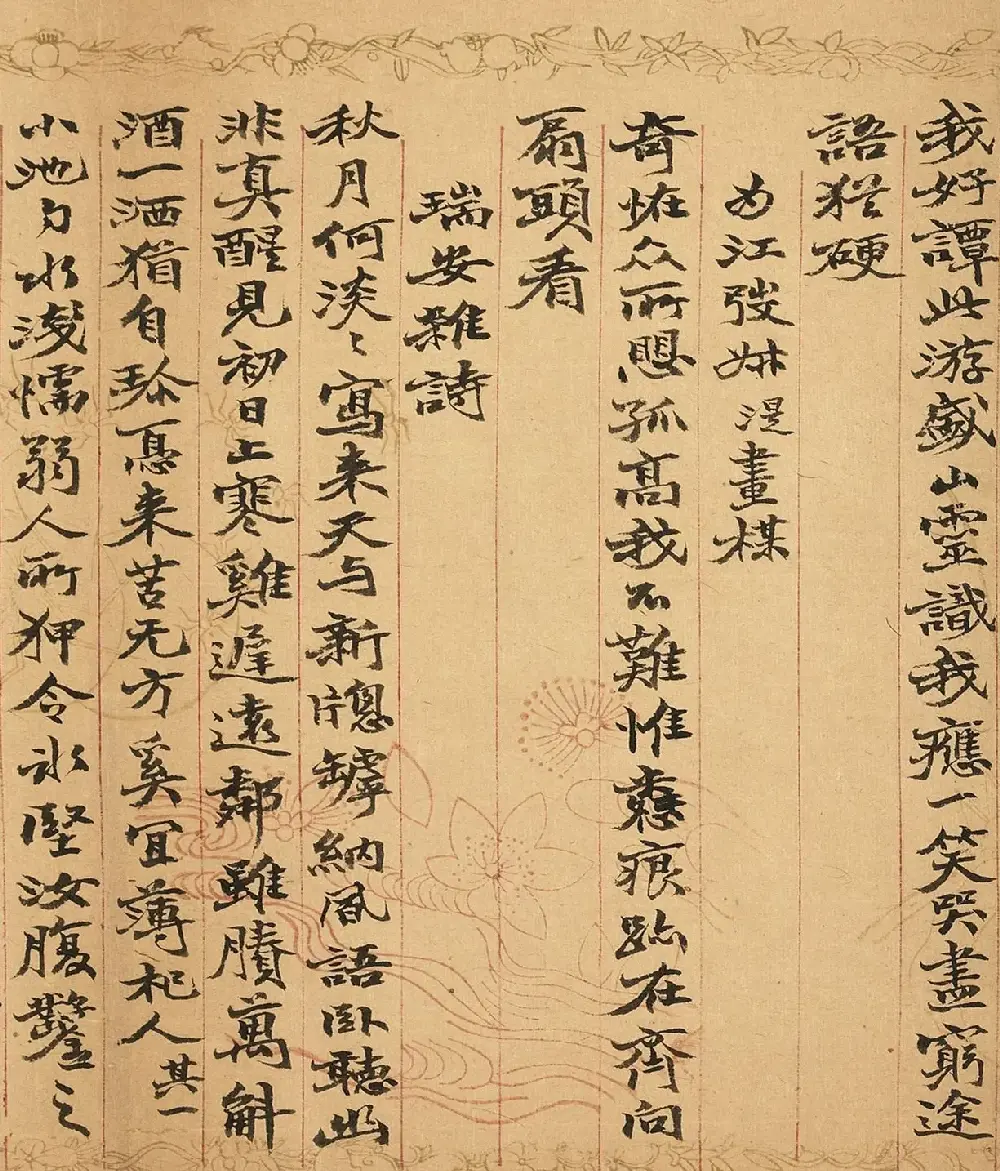 我好譚此游盛山靈識我應一笑哭盡窮途
語猶硬
為江弢妹湜畫楳
奇怪众所悤孤高我不難惟愁痕跡在齊向
扇頭看
瑞安雜詩
秋月何淡〻寫来天与新牕罅納風語臥聽此
非真醒見初日上寒雞遲遠鄰雖賸萬斛
酒一洒猶自珍憂来苦无方奚宜薄杞人其一
小池勺水淺懦弱人所狎令冰堅汝腹鑿之